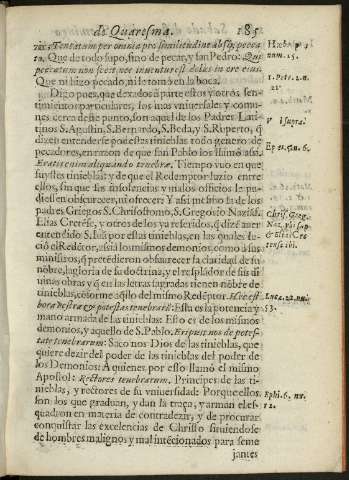 de Quaresma. 185
Tentatum per omnia pro similitudine absq; pecca
to. Que de todo supo, sino de pecar, y san Pedro: Qui
peccatum non fecit nec inuentus est dolus in ore eius.
Que ni hizo pecado, ni le tomò en la boca.
Digo pues, que dexados à parte estos y otros sen-
timientos particulares, los mas vniuersales y comu-
nes cerca deste punto, son aquel de los Padres Lati-
tinos S. Agustin, S. Bernardo, S. Beda, y S. Ruperto, q̃
dizen entenderse por estas tinieblas todo genero de
pecadores, en razon de que san Pablo los llamò assi.
Eratis enim aliquando tenebræ. Tiempo vuo en que
fuystes tinieblas: y de que el Redemptor luzio entre
ellos, sin que sus insolencias y malos oficios le pu-
diessen obscurecer, ni ofrecer: Y assi mesmo la de los
padres Griegos S. Chrisostomo, S. Gregorio Nazian.
Elias Cretese, y otros de los ya referidos, q̃ dizē auer
entendido S. Iuã por estas tinieblas, en las quales lu-
ciò el Redētor, assi à los mismos demonios, como à sus
ministros, q̃ pretendierõ obsurecer la claridad de su
nõbre, la gloria de su doctrina, y el resplādor de sus di
uinas obras y q̃ en las letras sagradas tienen nõbre de
tinieblas, cõforme aq̃llo del mismo Redēptor. Hæc est
hora vestra & potestas tenebrarũ: Esta es la potencia y
mano armada de las tinieblas: Esto es de los mismos
demonios, y aquello de S. Pablo. Eripuit nos de potes-
tate tenebrarum: Saco nos Dios de las tinieblas, que
quiere dezir del poder de las tinieblas del poder de
los Demonios: A quienes por esso llamò el mismo
Apostol: Rectores tenebrarum. Principes de las ti-
nieblas, y rectores de su vniuersidad: Porque ellos
son los que graduan, y dan la traça, y arman el es-
quadron en materia de contradezir, y de procurar
conquistar las excelencias de Christo siruiendose
de hombres malignos y mal intēcionados para seme
jantes
num. 15.
1. Petr. 2. n.
22.
V supra.
Ephes. 5. n. 6.
Chris. Greg.
Luce. 22. nu.
53.
Ephi. 6. nu.
12.